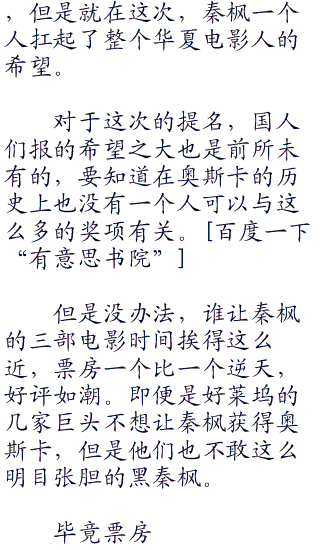 ，但是就在这次，秦枫一个
人扛起了整个华夏电影人的
希望。
对于这次的提名，国人
们报的希望之大也是前所未
有的，要知道在奥斯卡的历
史上也没有一个人可以与这
么多的奖项有关。[百度一下
“有意思书院”]
但是没办法，谁让秦枫
的三部电影时间挨得这么
近，票房一个比一个逆天，
好评如潮。即便是好莱坞的
几家巨头不想让秦枫获得奥
斯卡，但是他们也不敢这么
明目张胆的黑秦枫。
毕竟票房